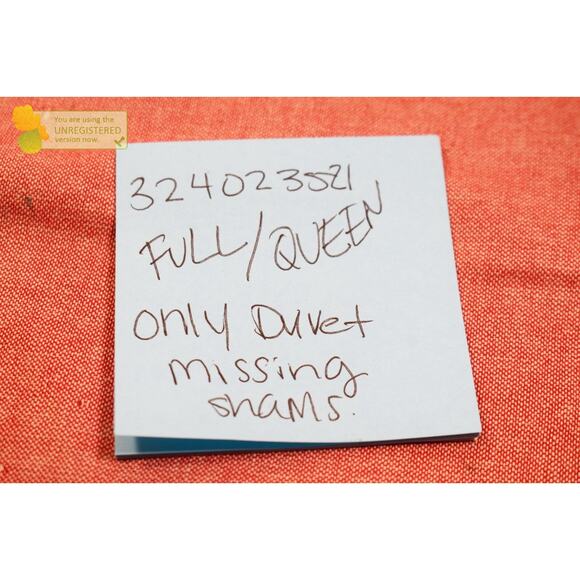 You are using the
UNREGISTERED
version now.
324023521
FULL/QUEEN
only Duvet
missing
shams.